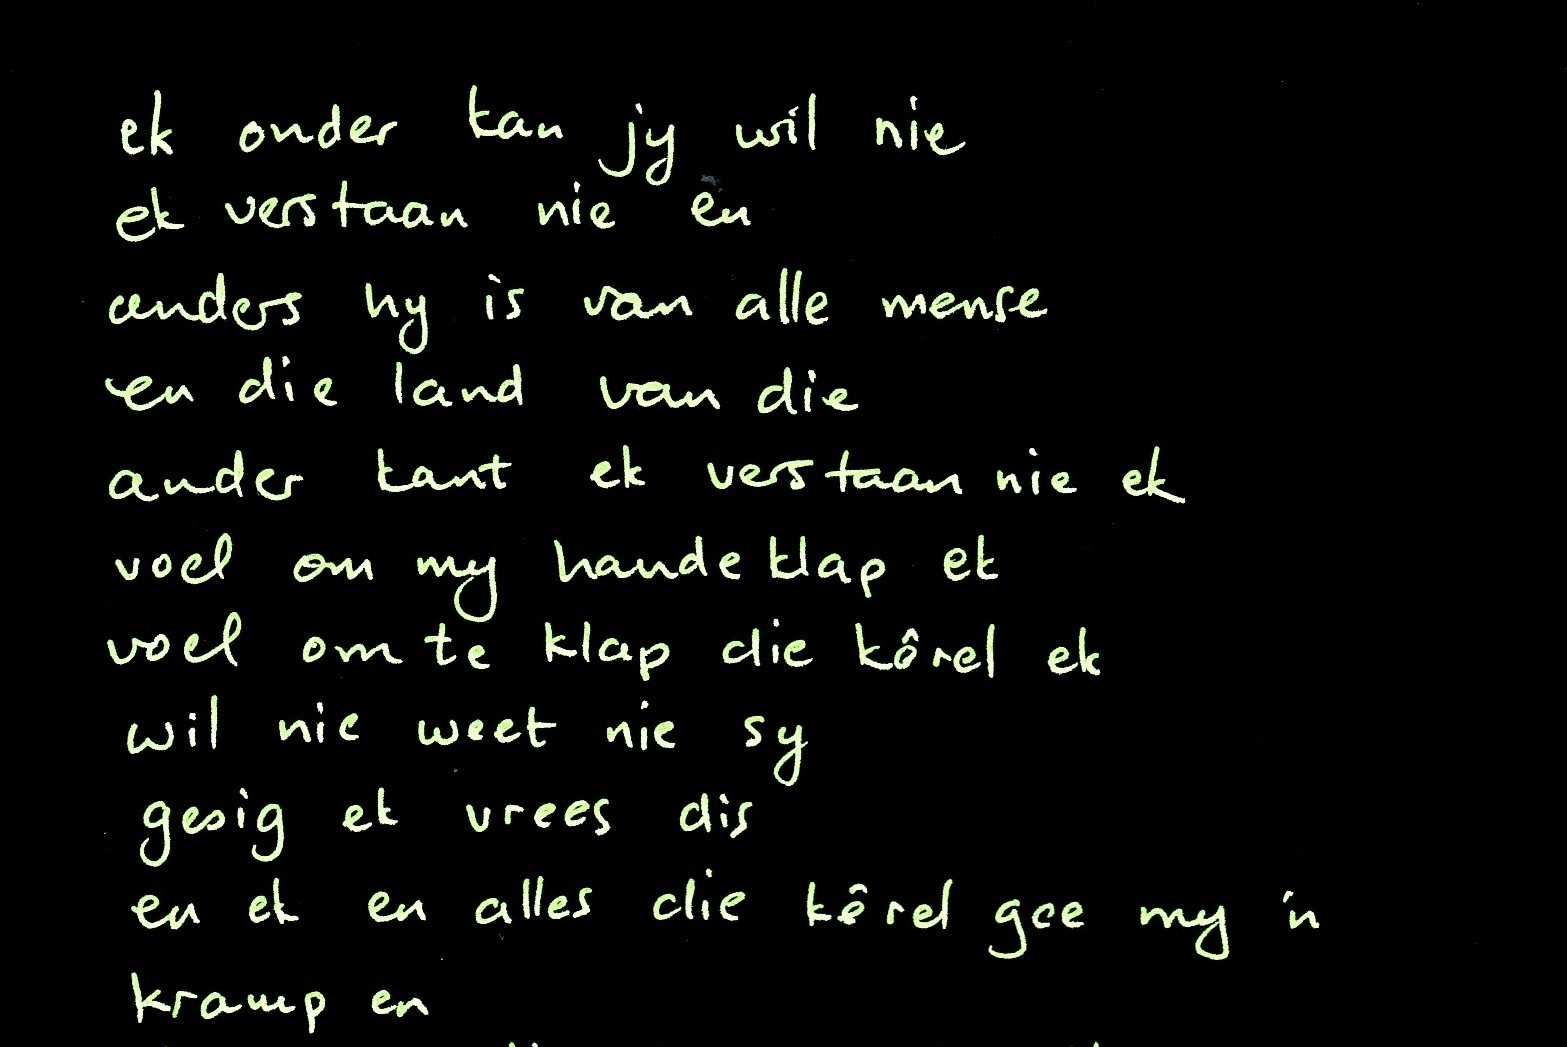 ek onder kan jy wil nie
ek verstaan nie en
anders hy is van alle mense
en die land van die
ander kant ek verstaan nie ek
voel om my hande klap ek
voel om te klap die kôrel ek
wil nie weet nie sy
gesig ek vrees dis
en ek en alles die kêrel gee my 'n
kramp en